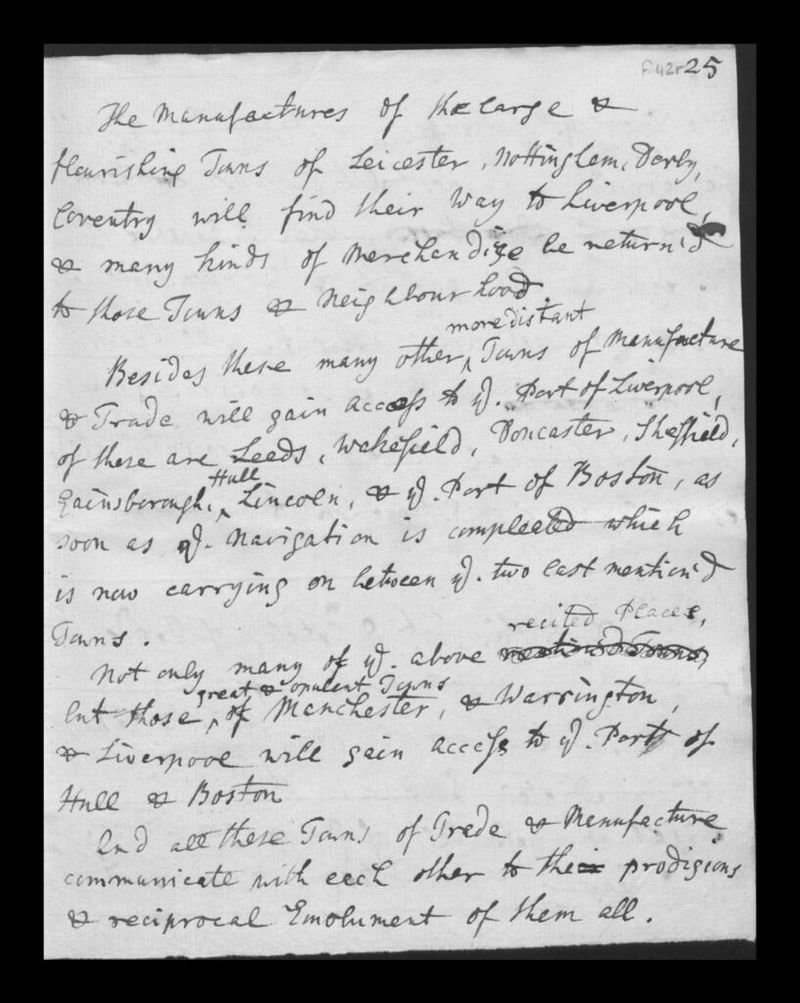 f.42r 25
The Manufactures of the large &
flourishing Towns of Leicester, Nottingham, Derby,
Coventry will find their Way to Liverpool,
& many kinds of Merchandize be return'd
to those Towns & Neighbourhood.
more distant
Besides these many other ‸ Towns of Manufacture
& Trade will gain access to ye. Port of Liverpool,
of these are Leeds, Wakefield, Doncaster, Sheffield,
Hull
Gainsborough, ‸ Lincoln, & ye. Port of Boston, as
soon as ye. Navigation is compleated which
is now carrying on between ye. two last mention'd
Towns.
recited Places,
Not only many of ye. above mention'd Towns,
great & opulent Towns
but those ‸ of Manchester, & Warrington,
& Liverpool will gain access to ye. Port of
Hull & Boston
And all these Towns of Trade & Manufacture
communicate with each other to the prodigious
& reciprocal Emolument of them all.